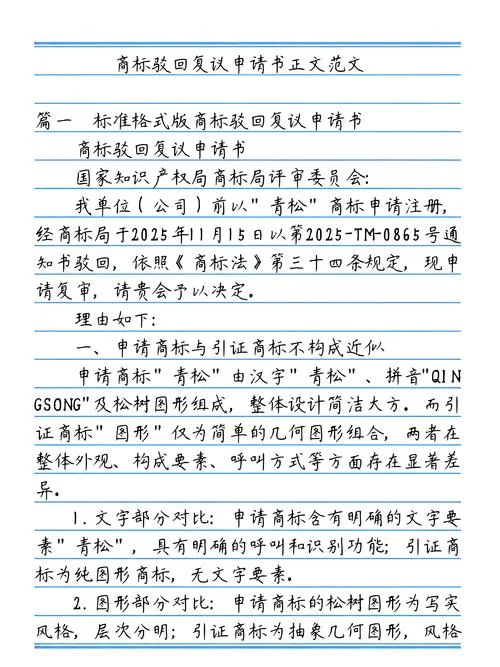 商标驳回复议申请书正文范文
篇一 标准格式版商标驳回复议申请书
商标驳回复议申请书
国家知识产权局商标局评审委员会:
我单位(公司)前以"青松"商标申请注册,
经商标局于2025年11月15日以第2025-TM-0865号通
知书驳回, 依照《商标法》第三十四条规定, 现申
请复审, 请贵会予以决定。
理由如下:
一、申请商标与引证商标不构成近似
申请商标"青松"由汉字"青松"、拼音"QIN
GSONG"及松树图形组成, 整体设计简洁大方。而引
证商标"图形"仅为简单的几何图形组合, 两者在
整体外观、构成要素、呼叫方式等方面存在显著差
异。
1. 文字部分对比: 申请商标含有明确的文字要
素"青松", 具有明确的呼叫和识别功能; 引证商
标为纯图形商标, 无文字要素。
2. 图形部分对比: 申请商标的松树图形为写实
风格, 层次分明; 引证商标为抽象几何图形, 风格